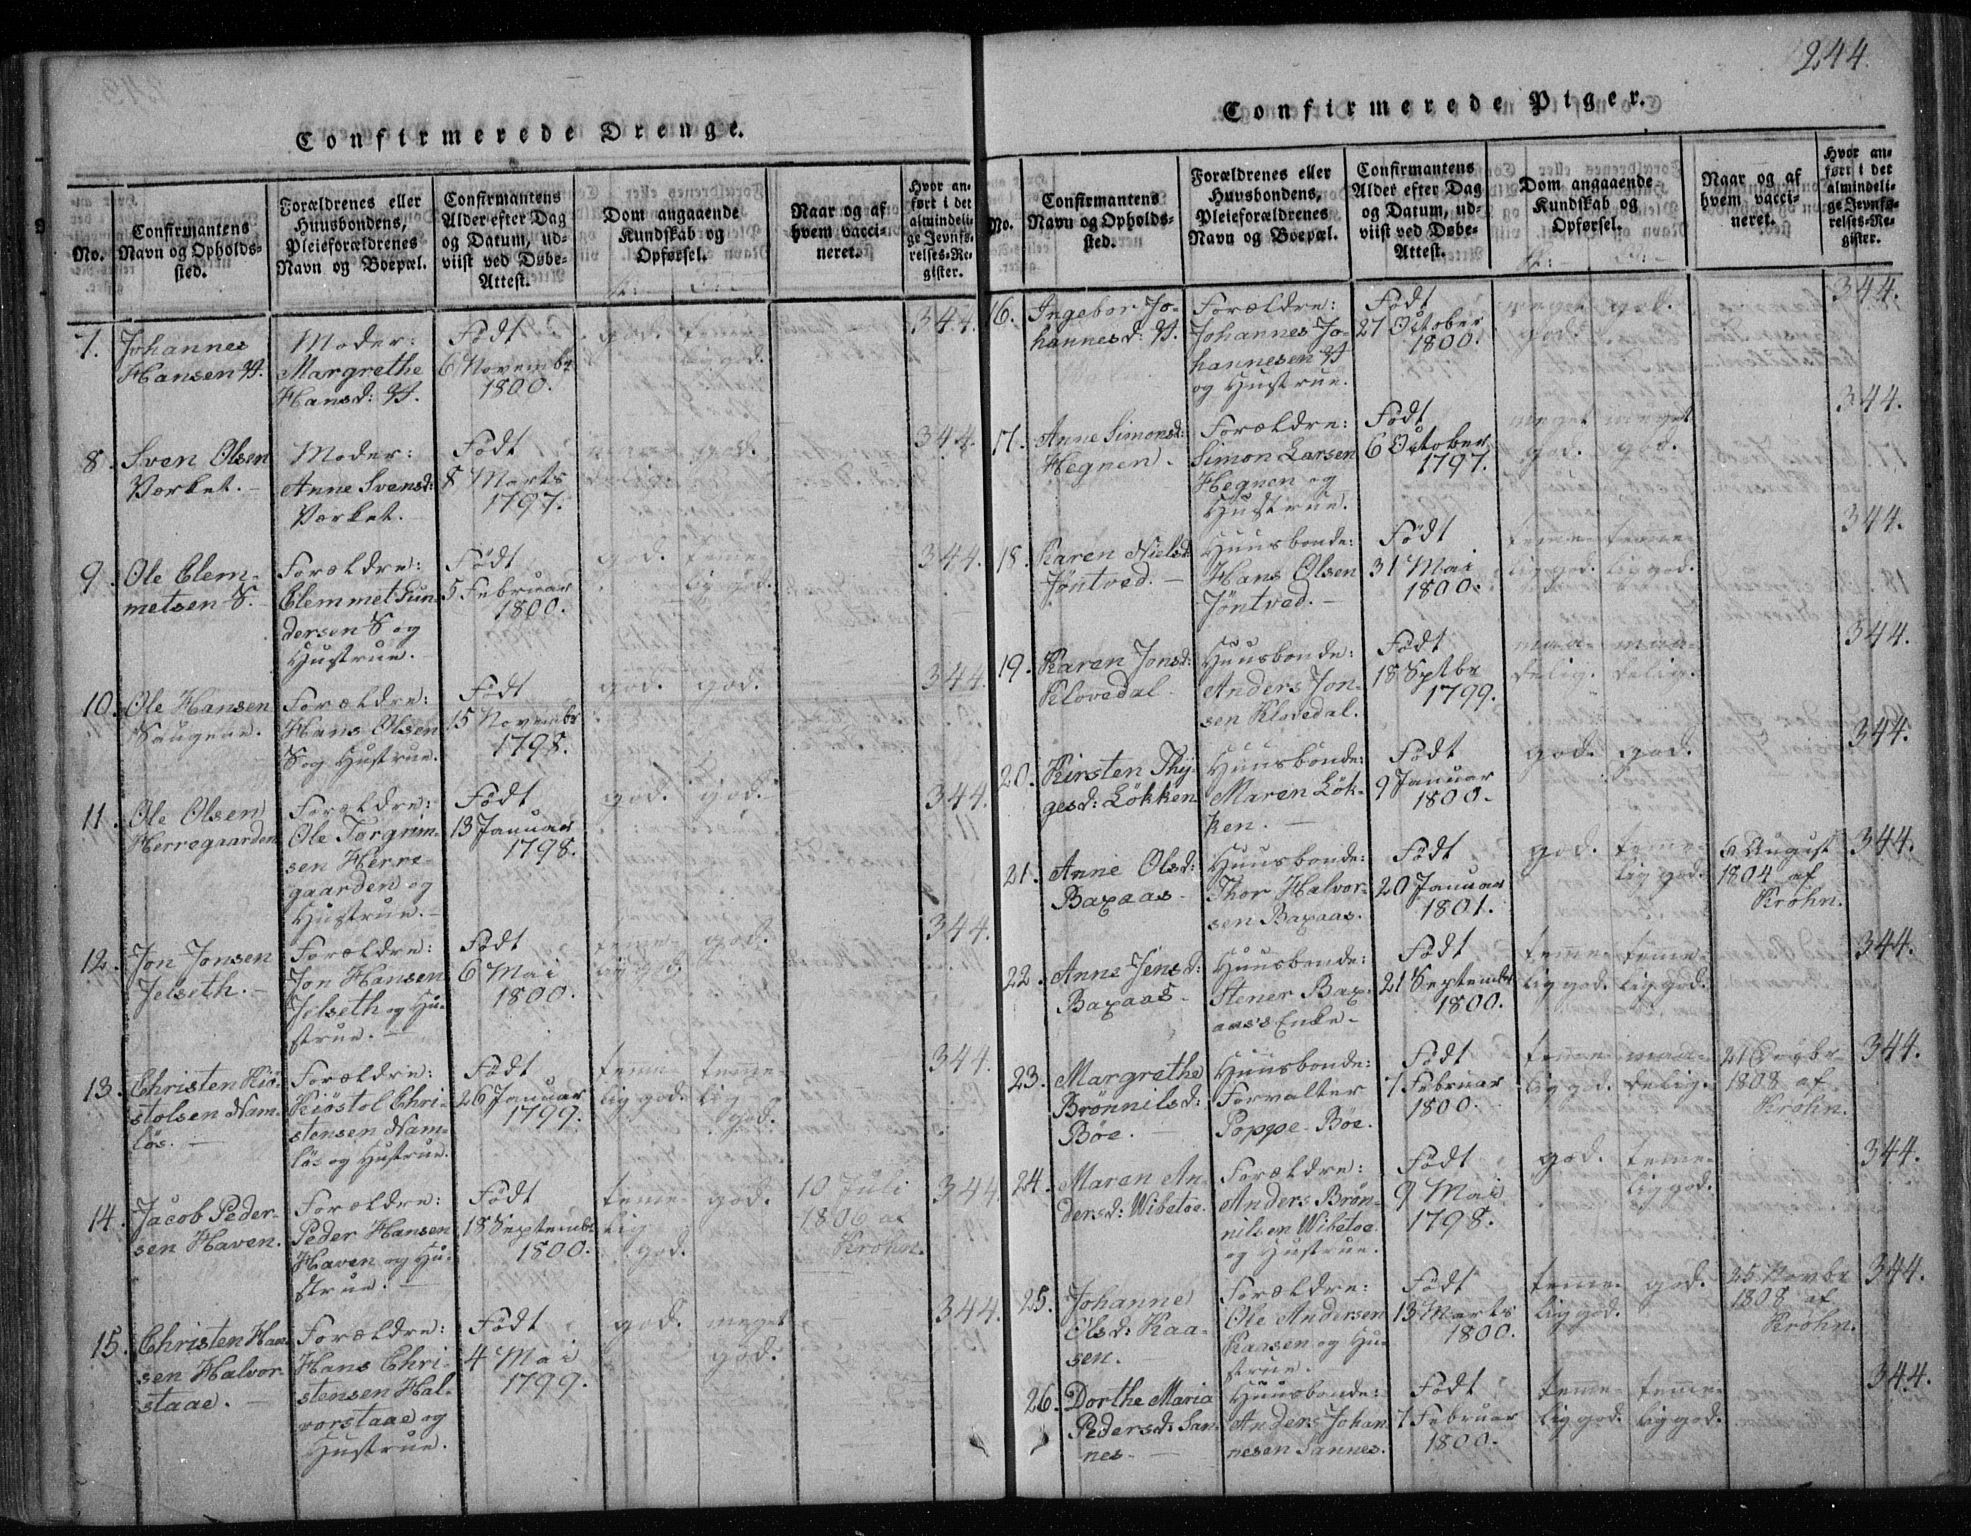 244.
Confirmerede Drenge.
No.
Confirmantens
Navn og Opholds-
sted.
Forældrenes eller
Huusbondens,
Pleieforældrenes
Navn og Boepæl.
Confirmantens
Alder efter Dag
og Datum, ud-
viist ved Døbe-
Attest.
Dom angaaende
Kundskab og
Opførsel.
Naar og af
hvem vacci-
neret.
Hvor an-
ført i det
almindeli-
ge Jevnfø-
relses-Re-
gister.
7.
Johannes
Hansen
Moder:
Margrethe
Hansd:
Født
6 Novembr
1800.
god.
teme-
lig god.
344.
8.
Sven Olsen
Værket.
Moder:
Anne Svensd:
Værket.
Født
8 Marts
1797.
god.
344.
9.
Ole Clem-
metsen S.
Forældre:
Clemmet Gun-
dersen S og
Hustrue.
Født
5 Februar
1800.
god.
teme-
lig god.
344.
10.
Ole Hansen
Saugene.
Forældre:
Hans Olsen
S og Hustrue.
Født
15 Novembr
1798.
god.
god.
344.
11.
Ole Olsen
Herregaarden
Forældre:
Ole Torgrim-
sen Herre-
gaarden og
Hustrue.
Født
13 Januar
1798.
god.
god.
344.
12.
Jon Jonsen
Jelseth.
Forældre:
Jon Hansen
Jelseth og Hu-
strue.
Født
6 Mai
1800.
teme-
lig god.
god.
344.
13.
Christen Kiö-
stolsen Nam-
lös.
Forældre:
Kiöstol Chri-
stensen Nam-
lös og Hustrue.
Født
26 Januar
1799.
teme-
lig god.
teme-
lig
god.
344.
14.
Jacob Peder-
sen Haven.
Forældre:
Peder Hansen
Haven og Hu-
strue.
Født
18 Septembr
1800.
teme-
lig
god.
god.
10 Juli
1806 af
Krohn.
344.
15.
Christen Han-
sen Halvor-
staae.
Forældre:
Hans Chri-
stensen Hal-
vorstaae og
Hustrue.
Født
4 Mai
1799.
god.
meget
god.
344.
Confirmerede Piger.
No.
Confirmantens
Navn og Opholds-
sted.
Forældrenes eller
Huusbondens,
Pleieforældrenes
Navn og Boepæl.
Confirmantens
Alder efter Dag
og Datum, ud-
viist ved Døbe-
Attest.
Dom angaaende
Kundskab og
Opførsel.
Naar og af
hvem vacci-
neret.
Hvor an-
ført i det
almindeli-
ge Jevnfø-
relses-Re-
gister.
16.
Ingebor Jo-
hannesd:
Forældre:
Johannes Jo-
hannesen
og Hustrue.
Født
27 October
1800.
meget
god.
god.
344.
17.
Anne Simonsd:
Hegnen.
Forældre:
Simon Larsen
Hegnen og
Hustrue.
Født
6 October
1797.
meget
god.
meget
god.
344.
18.
Karen Nielsd:
Jöntved.
Huusbonde:
Hans Olsen
Jöntved.
Født
31 Mai
1800.
teme-
lig god.
teme-
lig god.
344.
19.
Karen Jonsd:
Klovedal.
Huusbonde:
Anders Jon-
sen Klovedal.
Født
18 Septbr
1799.
maa-
delig.
maa-
delig.
344.
20.
Kirsten Thy-
gesd: Lökken
Huusbonde:
Maren Lök-
ken.
Født
9 Januar
1800.
god.
god.
344.
21.
Anne Olsd:
Baxaas.
Huusbonde:
Thor Halvor-
sen Baxaas.
Født
20 Januar
1801.
god.
teme-
lig god.
6 August
1804 af
Krohn.
344.
22.
Anne Jensd:
Baxaas.
Huusbonde:
Stener Bax-
aas's Enke.
Født
21 Septembr
1800.
teme-
lig god.
teme-
lig god.
344.
23.
Margrethe
Brönnilsd:
Böe.
Huusbonde:
Forvalter
Poppe Böe.
Født
7 Februar
1800.
teme-
lig god.
maa-
delig.
21
1808 af
Krohn.
344.
24.
Maren An-
dersd: Wibetoe.
Forældre:
Anders Brön-
nilsen Wibetoe
og Hustrue.
Født
9 Mai
1798.
god.
teme-
lig god.
344.
25.
Johanne
Olsd: Kaa-
sen.
Forældre:
Ole Andersen
Kaasen og Hu-
strue.
Født
13 Marts
1800.
teme-
lig god.
god.
25 Novbr
1808 af
Krohn.
344.
26.
Dorthe Maria
Pedersd: San-
nes.
Huusbonde:
Anders Johan-
nesen Sannes.
Født
7 Februar
1800.
teme-
lig god.
teme-
lig god.
344.